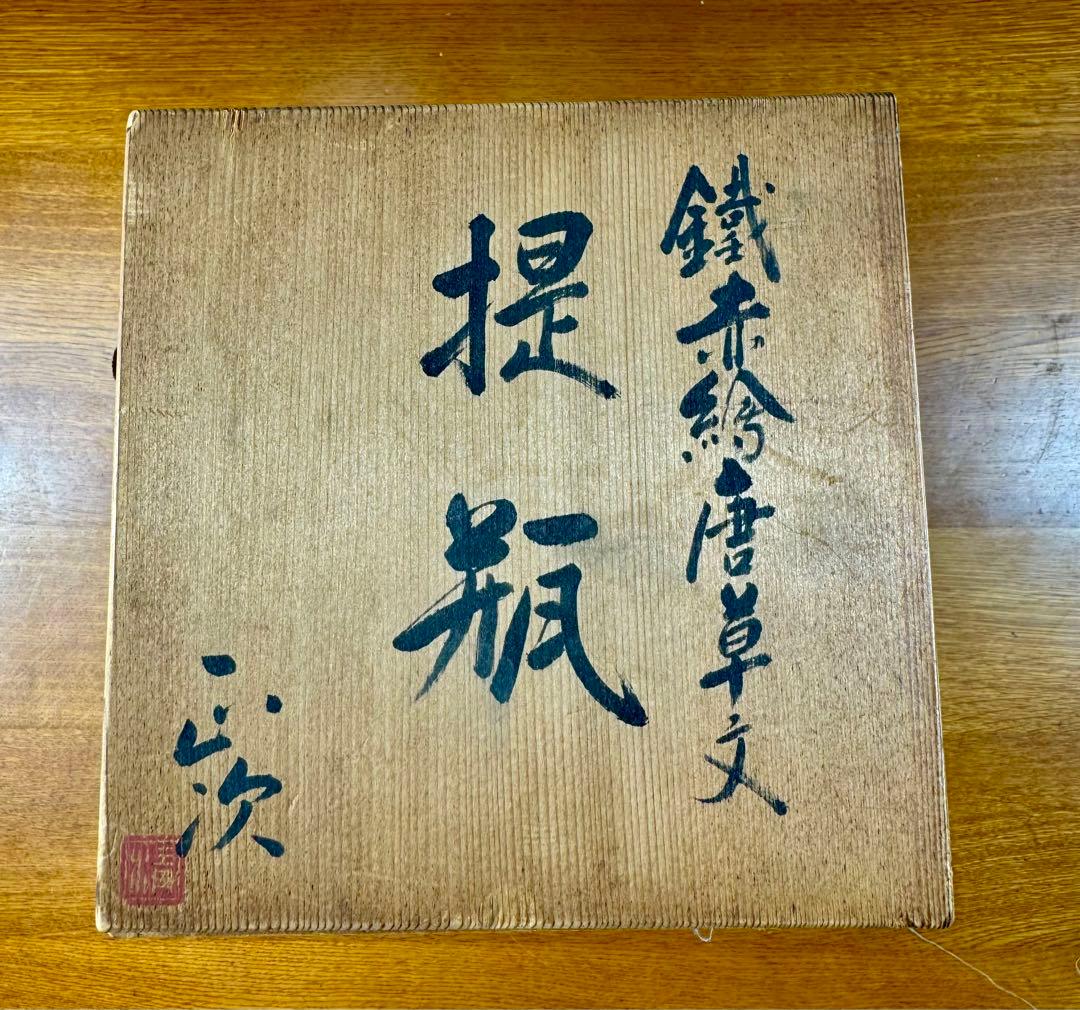 鐵赤繪唐草文
提瓶
正次